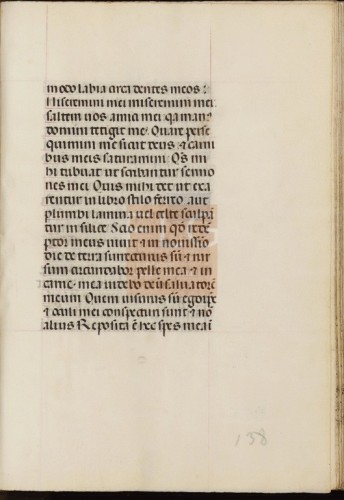 modo labia circa dentes meos:
Miseremini mei miseremini mei
saltem uos amici mei: qa man9
domini tetigit me. Quare perse
quimini me sicut deus: & carni
bus meis saturamini. Qs mi
hi tribuat ut scribantur sermo
nes mei. Quis mihi det ut exa
rentur in libro stilo ferreo. aut
plumbi lamina uel celte sculpā
tur in silice. Scio enim qd redē
ptor meus uiuit & in nouissīo
die de terra surrecturus sū & rur
sum circundabor pelle mea & in
carne mea uidebo deū saluatorē
meum. Quem uisurus sū ego ipse
& oculi mei conspecturi sunt & nō
alius Reposita ē hec spes mea ī
138